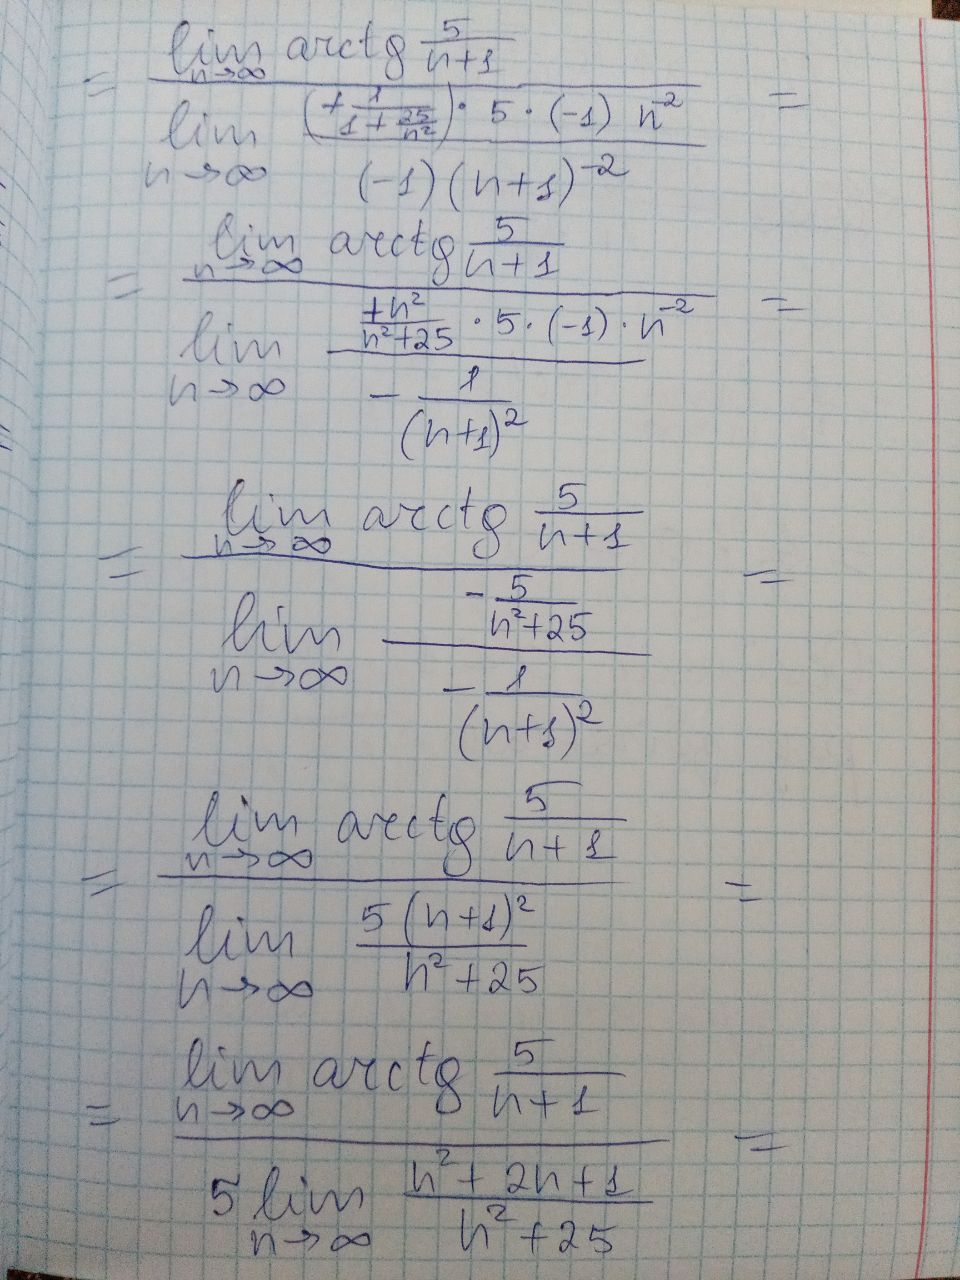 = lim n→∞ arctg 5/(n+1) =
lim n→∞ (+ 1/(1 + 25/n²)) · 5 · (-1) n⁻²
(-1) (n+1)⁻²
= lim n→∞ arctg 5/(n+1) =
lim n→∞ +n²/(n²+25) · 5 · (-1) · n⁻²
- 1/(n+1)²
= lim n→∞ arctg 5/(n+1) =
lim n→∞ - 5/(n²+25)
- 1/(n+1)²
= lim n→∞ arctg 5/(n+1) =
lim n→∞ 5(n+1)²/(n²+25)
= lim n→∞ arctg 5/(n+1) =
5 lim n→∞ (n²+2n+1)/(n²+25)